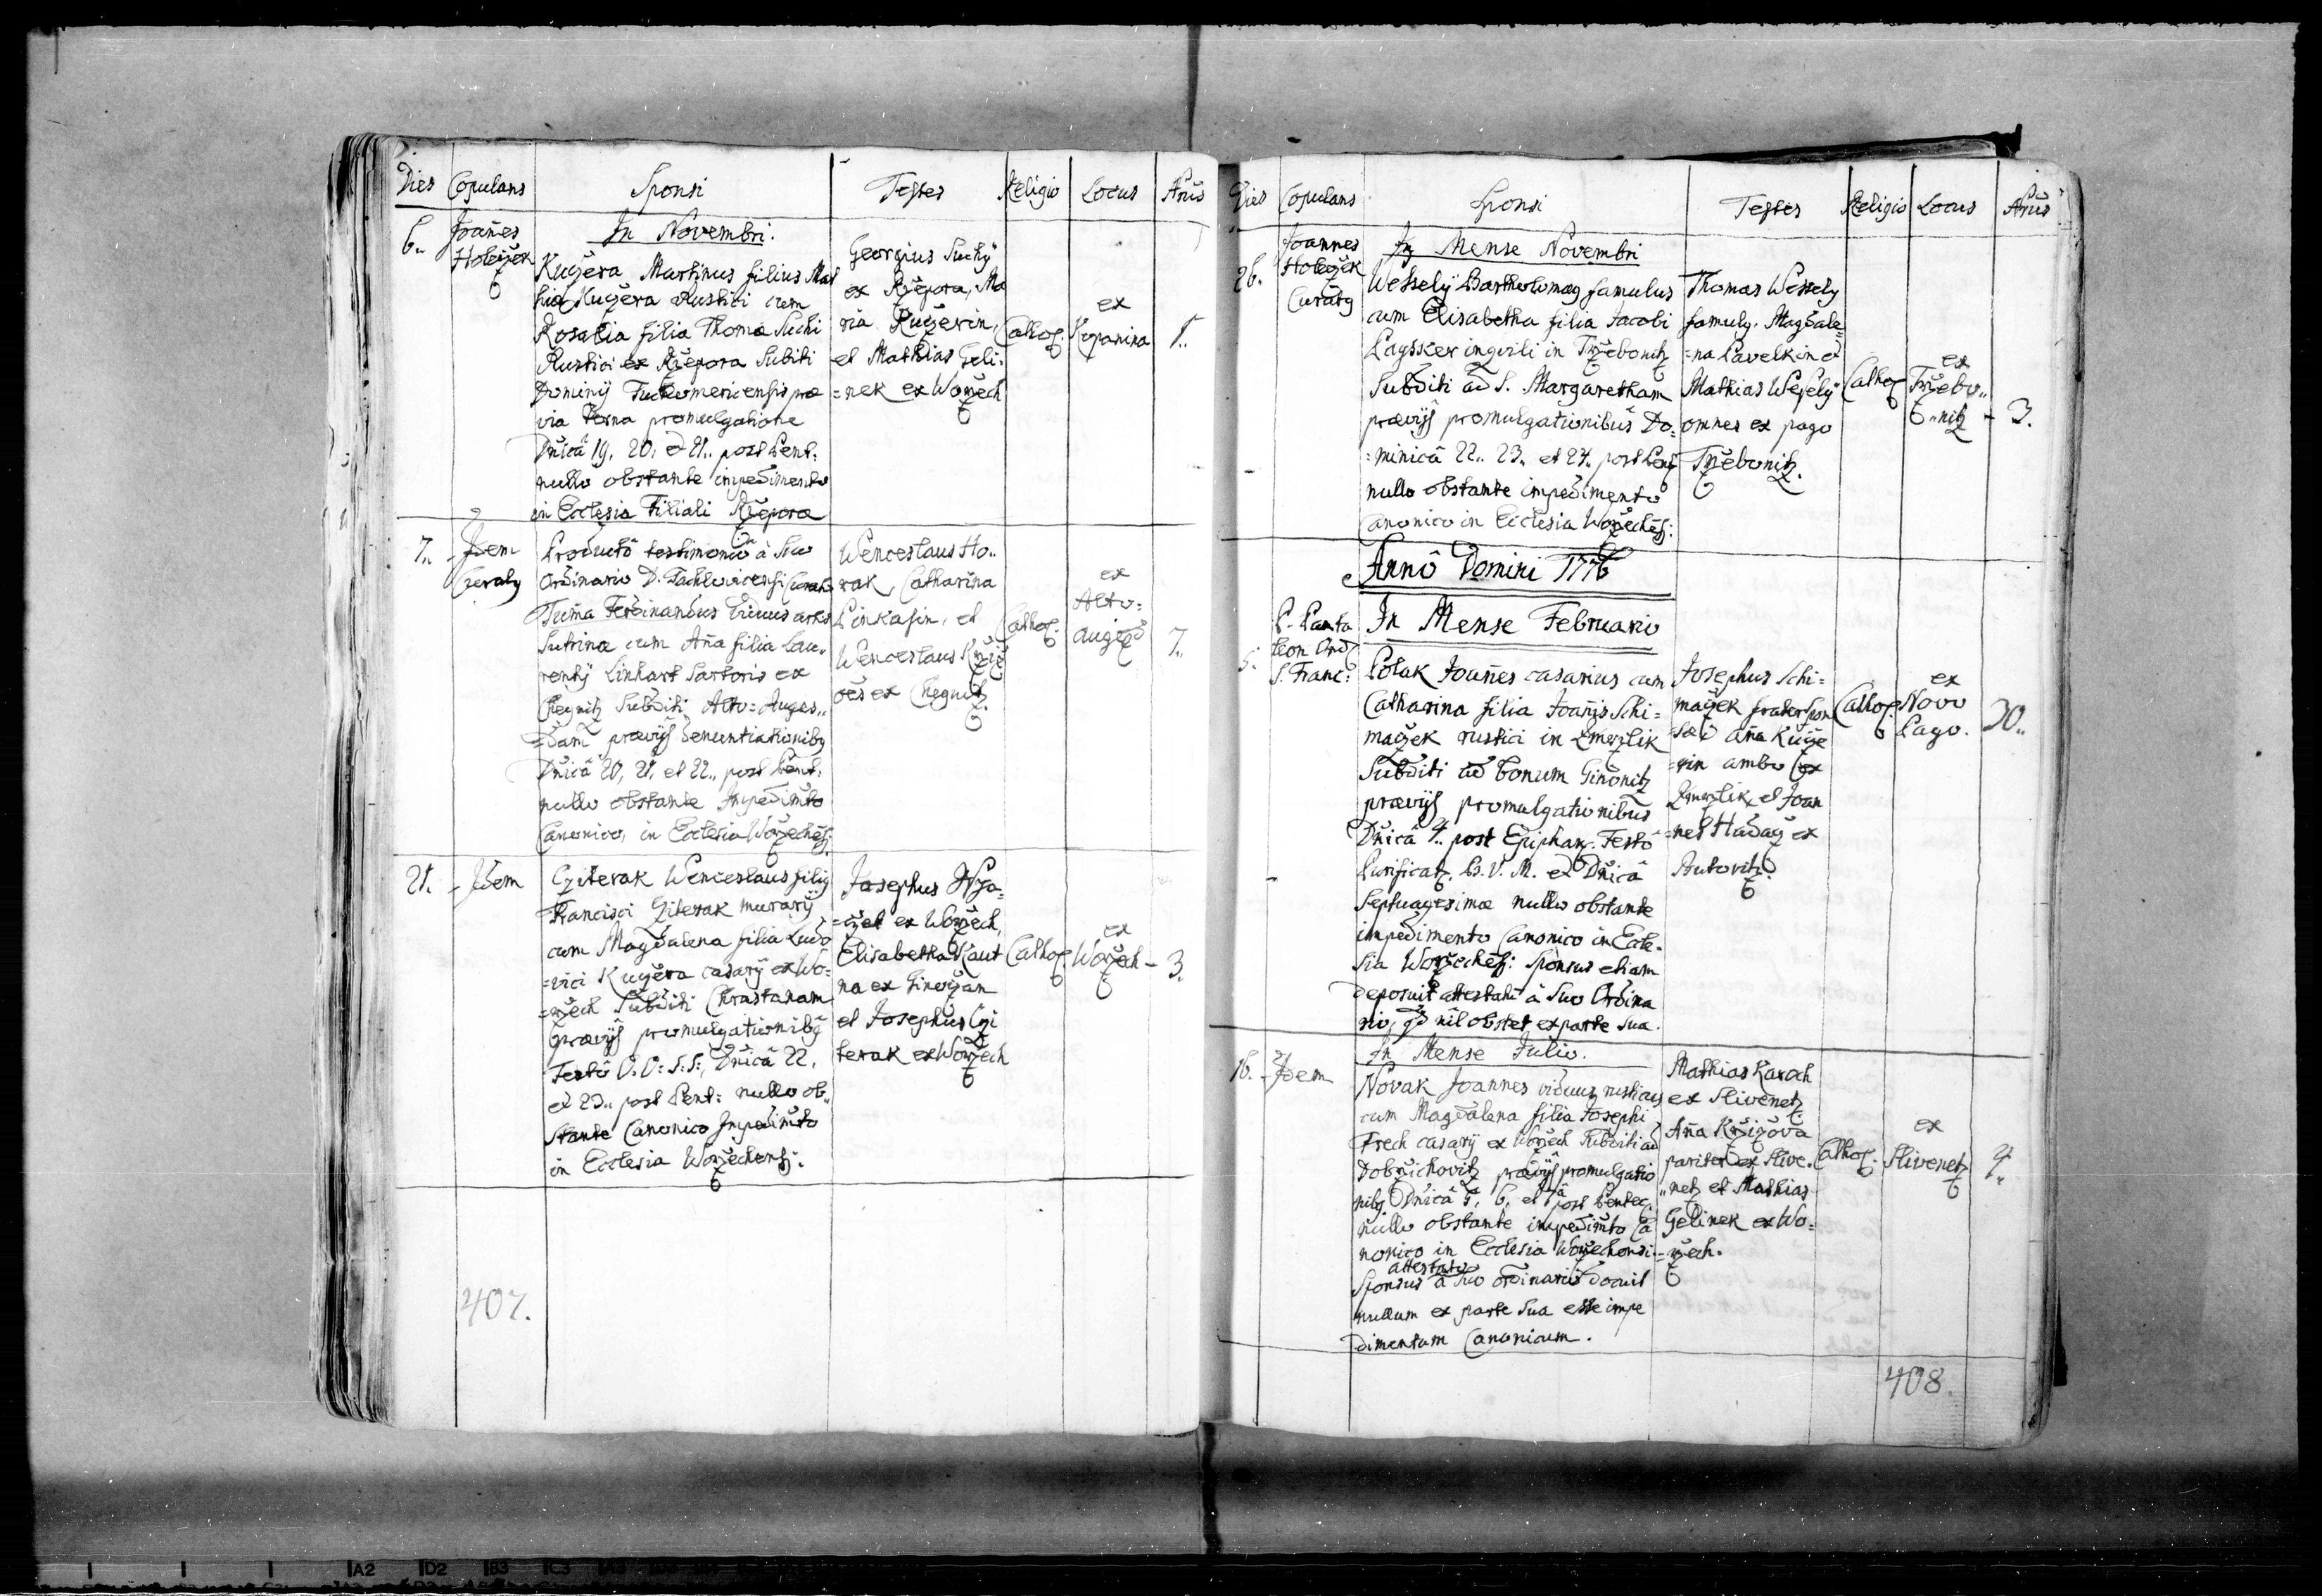 Dies Copulans Sponsi Testes Religio Locus Añus
6.. Joañes
Holeczek
In Novembri.
Kuczera Martinus filius Mat
hiæ Kuczera Rustici cum
Rosalia filia Thomæ Suchi
Rustici ex Rzepora Subditi
Dominij præ
via terna promulgatione
Dnicâ 19, 20, et 21.. post Pent:
nullo obstante impedimento
in Ecclesia Filiali Rzeporæ
Georgius Suchÿ
ex Rzepora, Ma
ria Kuczerin,
et Mathias Geli:
=nek ex Worzech
Cathol:
ex
Kopanina
1..
7.. Idem
Curatg
Productô testimoniô â Suo
Ordinario D. Tachlovicensi Curato
Tuma Ferdinandus Viduus artis
Sutrinæ cum Aña filia Lau„
rentÿ Linhart Sartoris ex
Chegnitz Subditi Alto=Auges„
=dam prævijs denuntiationibg
Dnicâ 20, 21, et 22.. post Pent:
nullo obstante Impedimto
Canonico, in Ecclesia Worzechẽs:
Wenceslaus Ho„
rak, Catharina
Linkasin, et
Wenceslaus Krziž
oẽs ex Chegnitz.
Cathol:
ex
Alto=
augezd
7..
21. Idem
Cziterak Wenceslaus filig
Francisci Cziterak murarÿ
cum Magdalena filia Ludo
=vici Kuczera casarÿ ex Wo=
=rzech Subditi Chrastanam
prævijs promulgationibg
Festô O: O: S: S:, Dnicâ 22.
et 23.. post Pent: nullo ob„
stante Canonico Impedimto
in Ecclesia Worzechensj:
Josephus
ex Worzech,
Elisabetha Kaut
na ex Ginoczan
et Josephus Czi
terak ex Worzech
Cathol:
ex
Worzech
3.
407.
Dies Copulans Sponsi Testes Religio Locus Añus
26. Joannes
Holeczek
Curatg
In Mense Novembri
Wessely Bartholomæg famulus
cum Elisabetha filia Jacobi
Paysker inqvili in Trzebonitz
Subditi ad S. Margaretham
prævijs promulgationibus Do=
=minicâ 22.. 23.. et 24.. post Pent
nullo obstante impedimento
Canonico in Ecclesia Worzechẽs:
Thomas Wessely
famulg. Magdale=
=na Pavelkin et
Mathias Weselÿ
omnes ex pago
Trzebonitz.
Cathol
ex
Trzebo„
„nitz
3.
Annô Domini 1776
In Mense Februario
5. P. Panta
leon Ord
S. Franc:
Polak Joañes casarius cum
Catharina filia Joañis Schi=
maczek rustici in Zmerzlik
Subditi ad bonum Ginonitz
prævijs promulgationibus
Dnicâ 4.. post Epiphan: Festô
Purificat: B. V. M. et Dnicâ
Septuagesimæ nullo obstante
impedimento Canonico in Eccle.
sia Worzechẽs: Sponsus etiam
deposuit attestatũ â Suo Ordina
rio, qd nil obstet ex parte Sua.
Josephus Schi=
maczek frater Spon
=sæ Aña Kucze
=rin ambo ex
Zmerzlik, et Joan
=nes Hadag ex
Butovitz.
Cathol:
ex
Novo
Pago.
30..
16. Idem
In Mense Julio.
Novak Joannes viduus rusticus
cum Magdalena filia Josephi
Frech casarÿ ex Worzech Subditi ad
Dobrzichovitz prævijs promulgatio
nibg Dnicâ 5, 6, et 7â post Pentec:
nullo obstante impedimto Ca
nonico in Ecclesia Worzechensi.
attestato
Sponsus â Suo ordinario docuit
nullum ex parte Sua esse impe
dimentum Canonicum.
Mathias
ex Slivenetz
Aña Krzizova
pariter ex Slive.
„netz et Mathias
Gelinek ex Wo=
=rzech.
Cathol:
ex
Slivenetz
408.